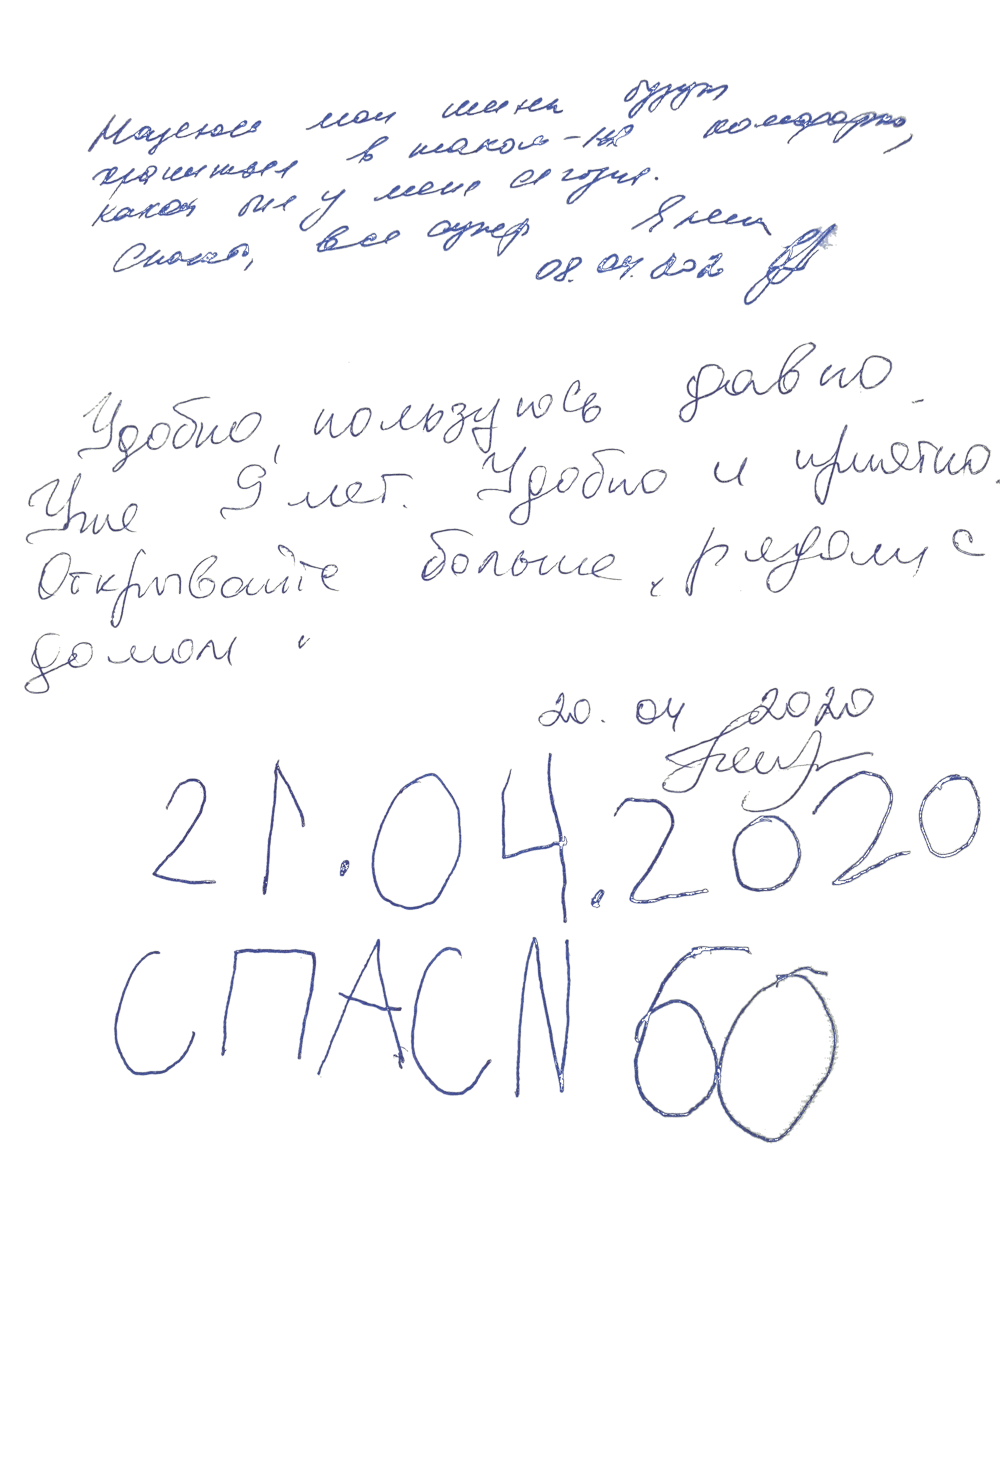 Надеюсь мои шины будут
храниться в таком-же комфорте,
какой был у меня сегодня.
Спасибо, все супер
08.04.202
Удобно, пользуюсь давно.
Уже 9 лет. Удобно и приятно.
Открывайте больше, рядом с
домом.
20.04 2020
21.04.2020
СПАСNБО